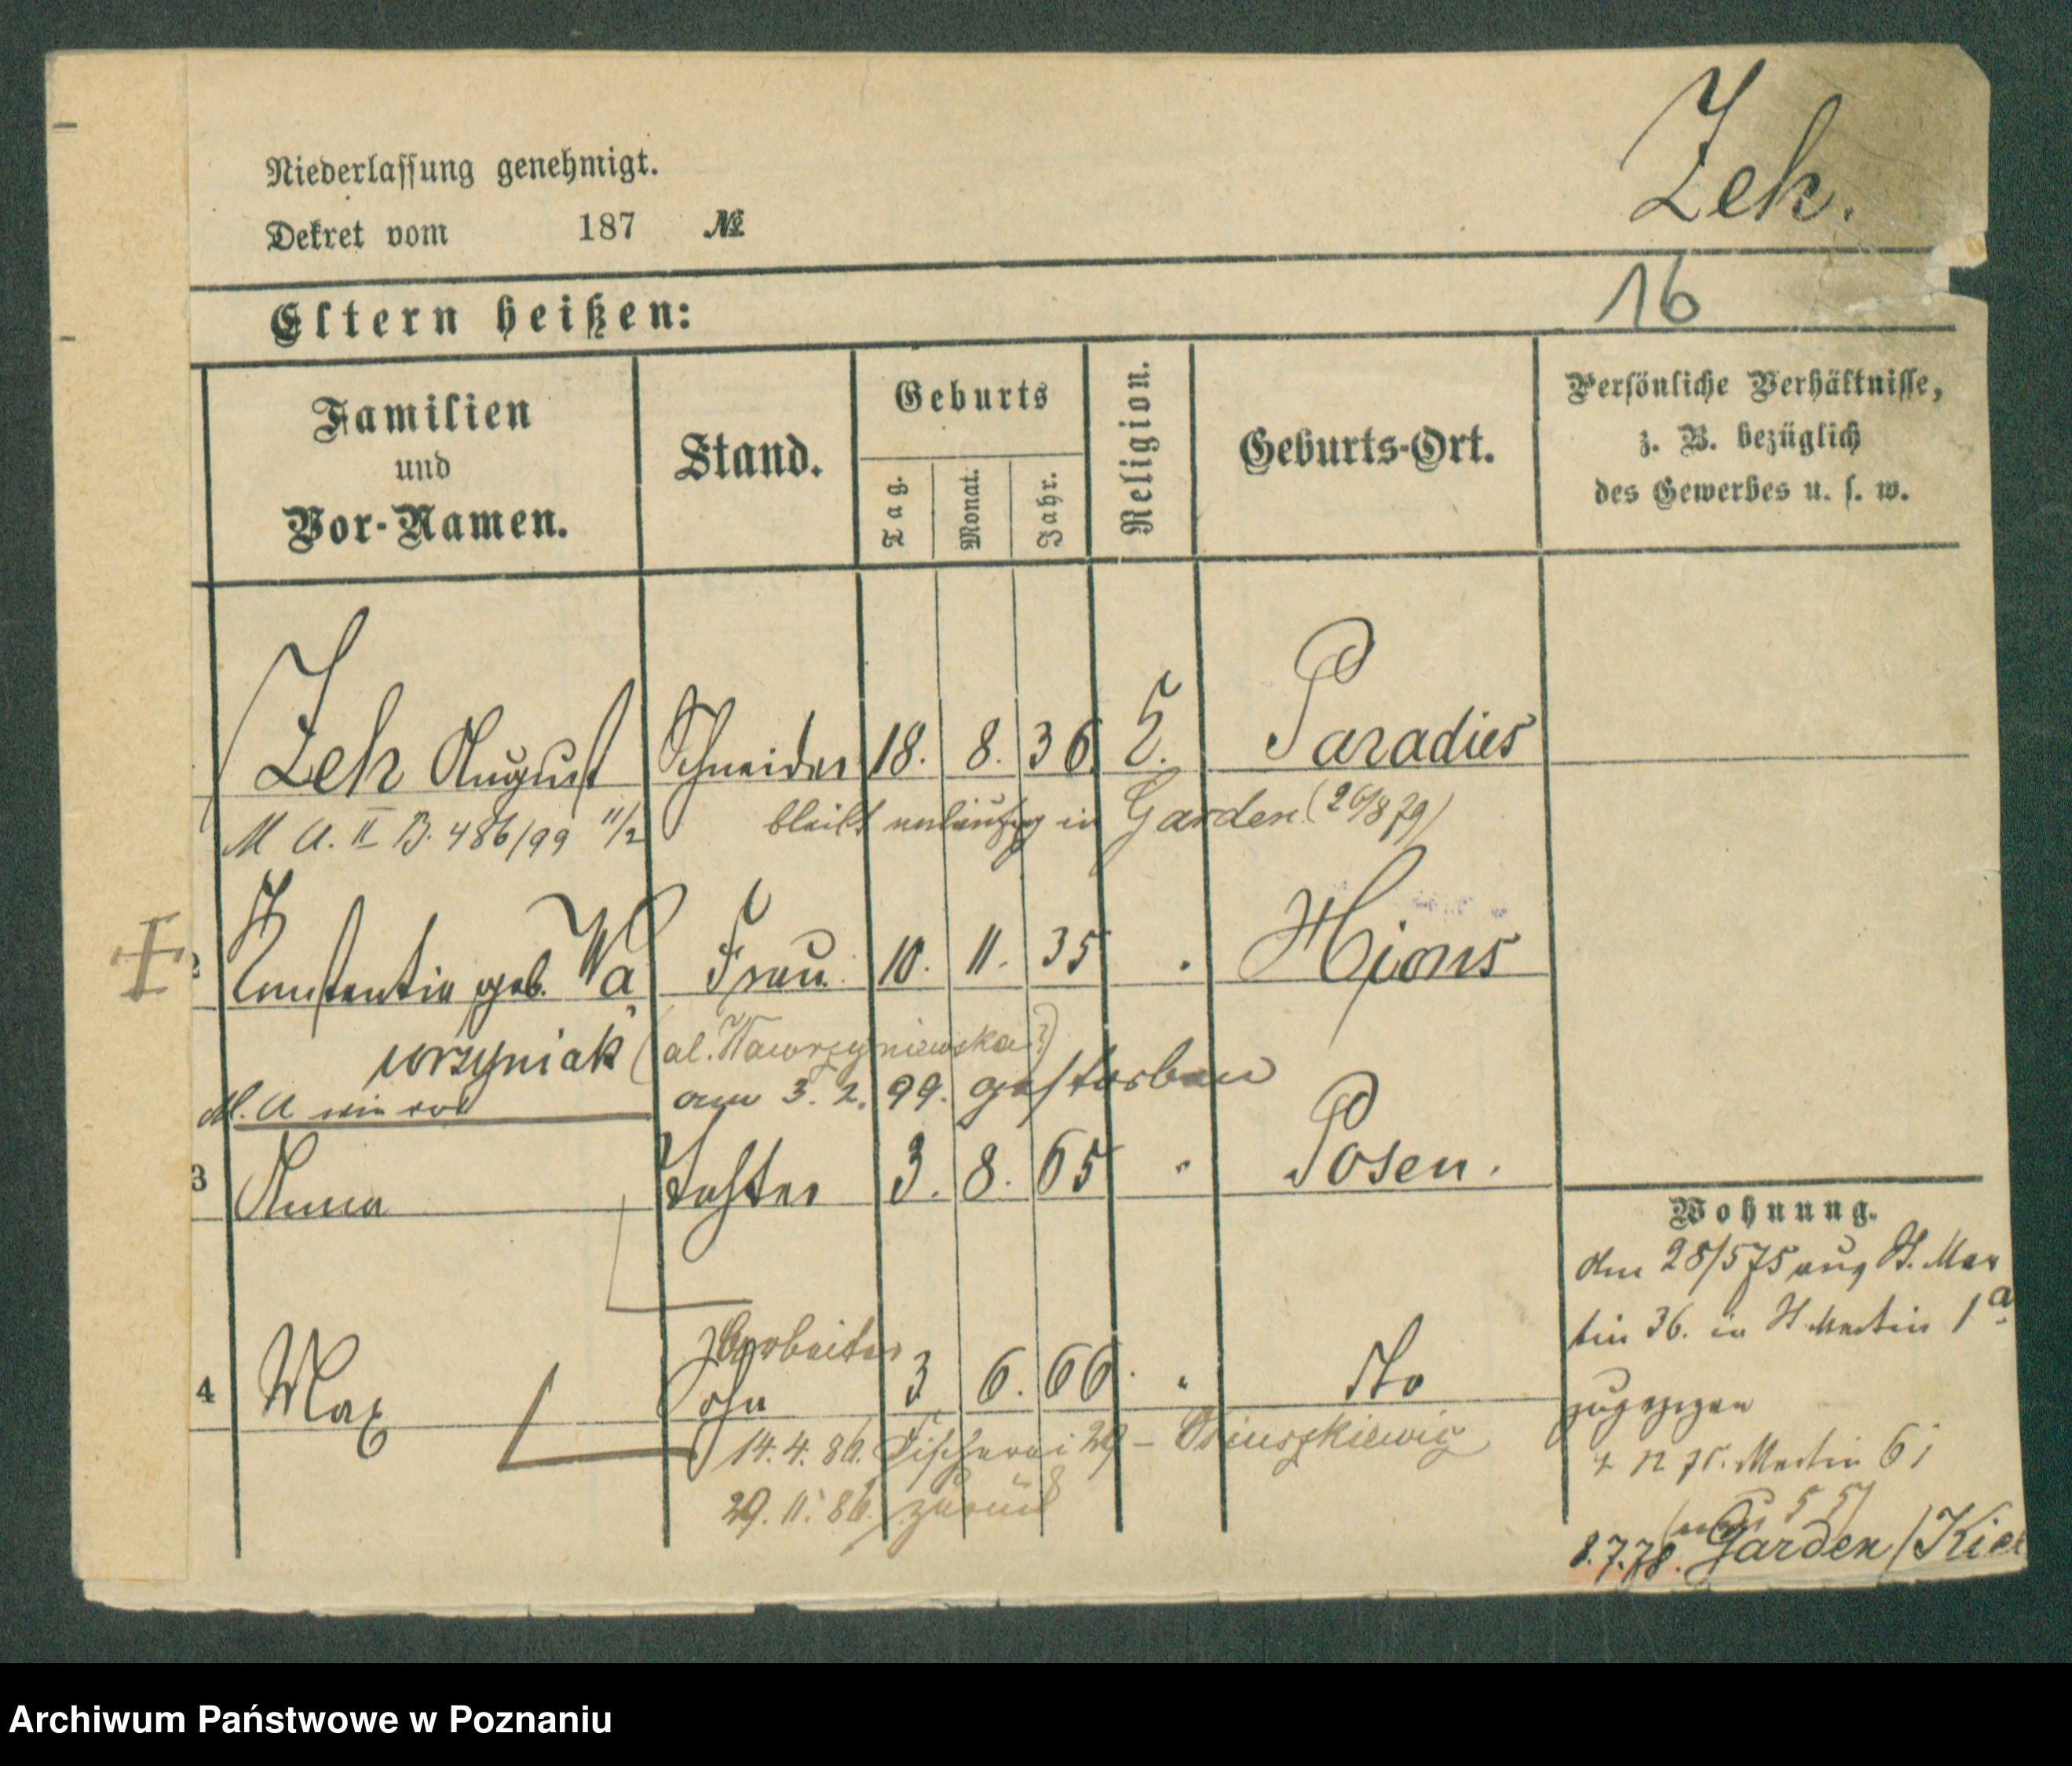 Zeh.
Niederlassung genehmigt.
Dekret vom 187 №
16
Eltern heißen:
Familien und Vor-Namen.
Stand.
Geburts
Tag.
Monat.
Jahr.
Religion.
Geburts-Ort.
Persönliche Verhältnisse,
z. B. bezüglich
des Gewerbes u. s. w.
Zeh August Schneider 18. 8. 36. E. Paradies
M A. II B. 486/99 11/2 bleibt vorläufig in Garden (26/8 79)
2 Konstantia geb. Wa Frau 10. 11. 35 . Xions
wrzyniak (al. Wawrzyniewska?)
M. A wie vor am 3. 2. 99. gestorben
3 Anna Tochter 3. 8. 65 " Posen.
Wohnung.
den 28/5 75 aus St. Mar
tin 36. in St. Martin 1a
zugezogen
Arbeiter
4 Max Sohn 3 6. 66. " do
14. 4. 86. Fischerei 29 –
29. 11. 86. zurück
4 12 75. Martin 61
8.7.78. Garden / Kie
Archiwum Państwowe w Poznaniu